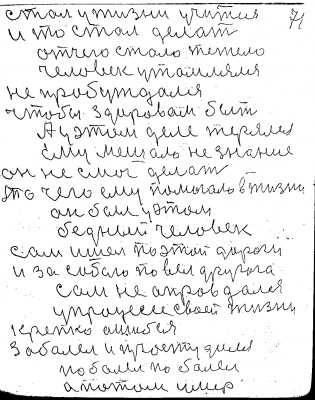 стал у жизни учится 71
и то стал делат
отчего стало тежело
человек утомлялся
не пробуждался
чтобы здоровам быт
А у этом деле терялся
Ему мешало не знание
он не смог делат
то чего ему помогало в жизни
он был у этом
бедный человек
сам ишел по этой дороги
и за собаю повел другога
сам не оправдался
у процесе своей жизни
крепко ошибся
Заболел и простудился
поболел поболел
а потом имер